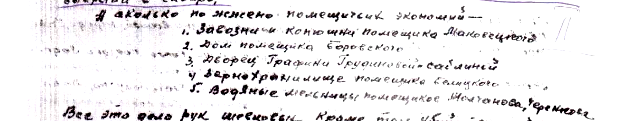 А сколько по жжено помещичьих экономий —
1. Завозни и конюшни помещика Маковецкого
2. Дом помещика Боровского
3. Дворец Графини Грудиновой-саблиной
4 Зернохранилище помещика Белицкого
5. Водяные мельницы помещиков Молчанова,
Все это дело рук Кроме